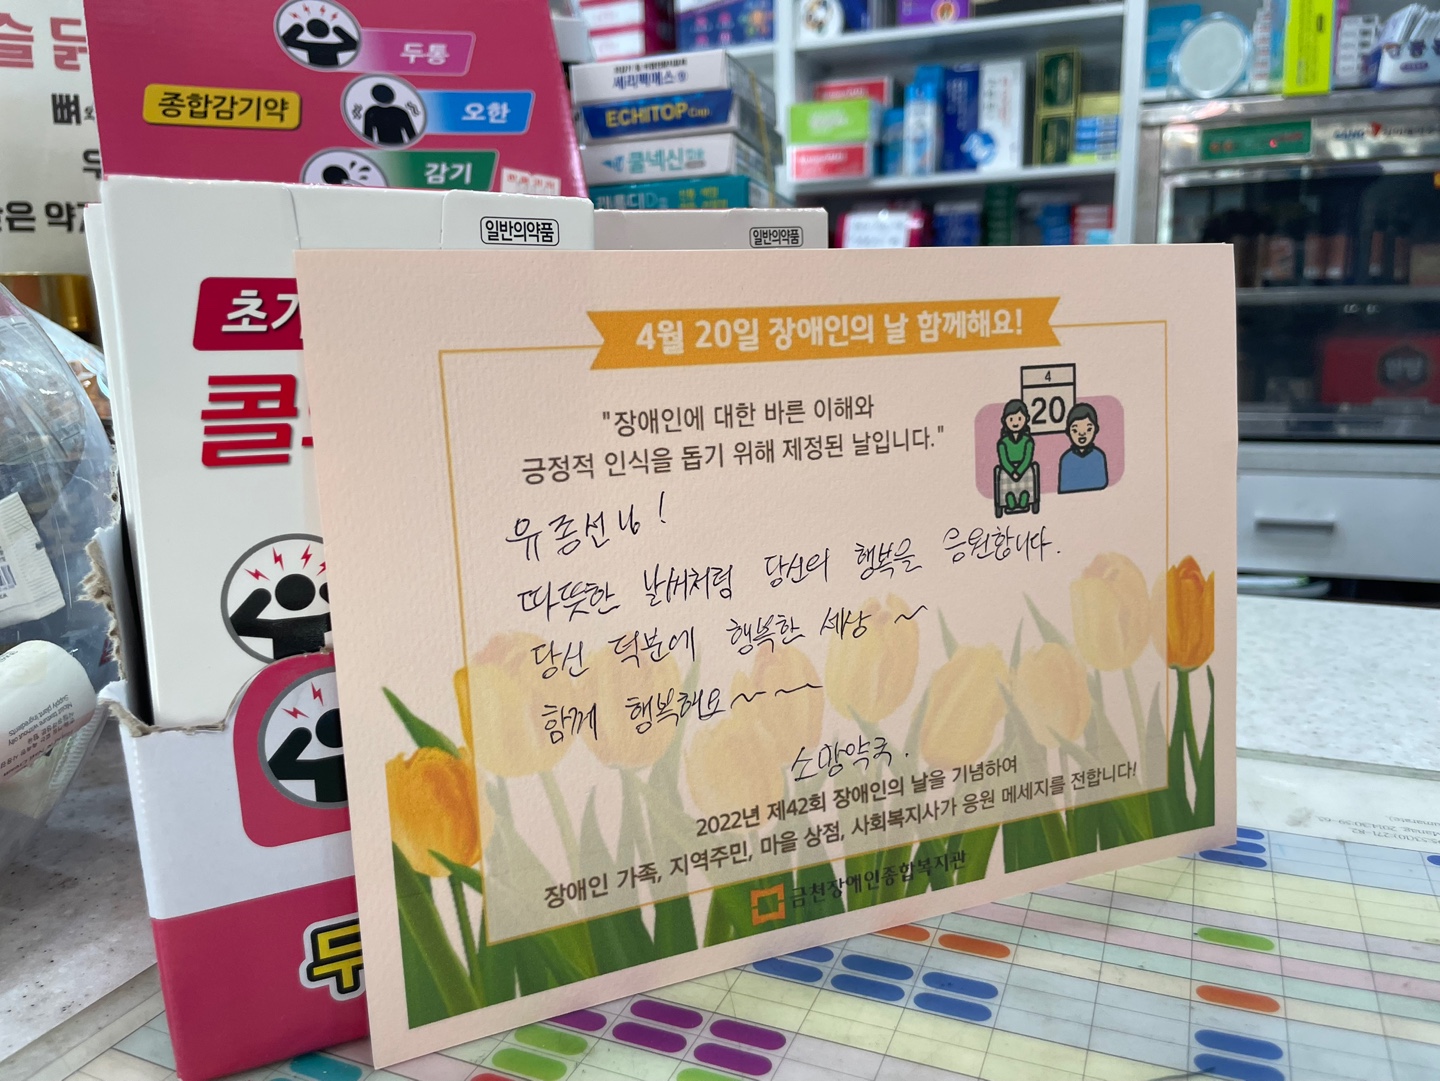 두통
종합감기약
오한
감기
세리백매스
ECHITOP Cap.
콜넥신
일반의약품
일반의약품
초기
콜
4월 20일 장애인의 날 함께해요!
4
20
"장애인에 대한 바른 이해와
긍정적 인식을 돕기 위해 제정된 날입니다."
유종선님!
따뜻한 날씨처럼 당신의 행복을 응원합니다.
당신 덕분에 행복한 세상 ~
함께 행복해요~~~
소망약국.
2022년 제42회 장애인의 날을 기념하여
장애인 가족, 지역주민, 마을 상점, 사회복지사가 응원 메세지를 전합니다!
금천장애인종합복지관
두